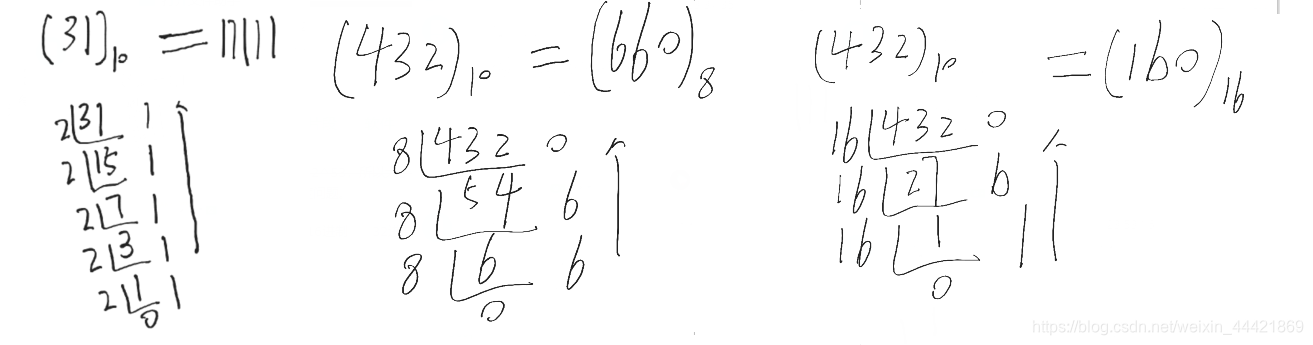 (31)₁₀ = 11111
2 31 1
2 15 1
2 7 1
2 3 1
2 1 1
0
(432)₁₀ = (660)₈
8 432 0
8 54 6
8 6 6
0
(432)₁₀ = (1b0)₁₆
16 432 0
16 27 b
16 1 1
0
https://blog.csdn.net/weixin_44421869